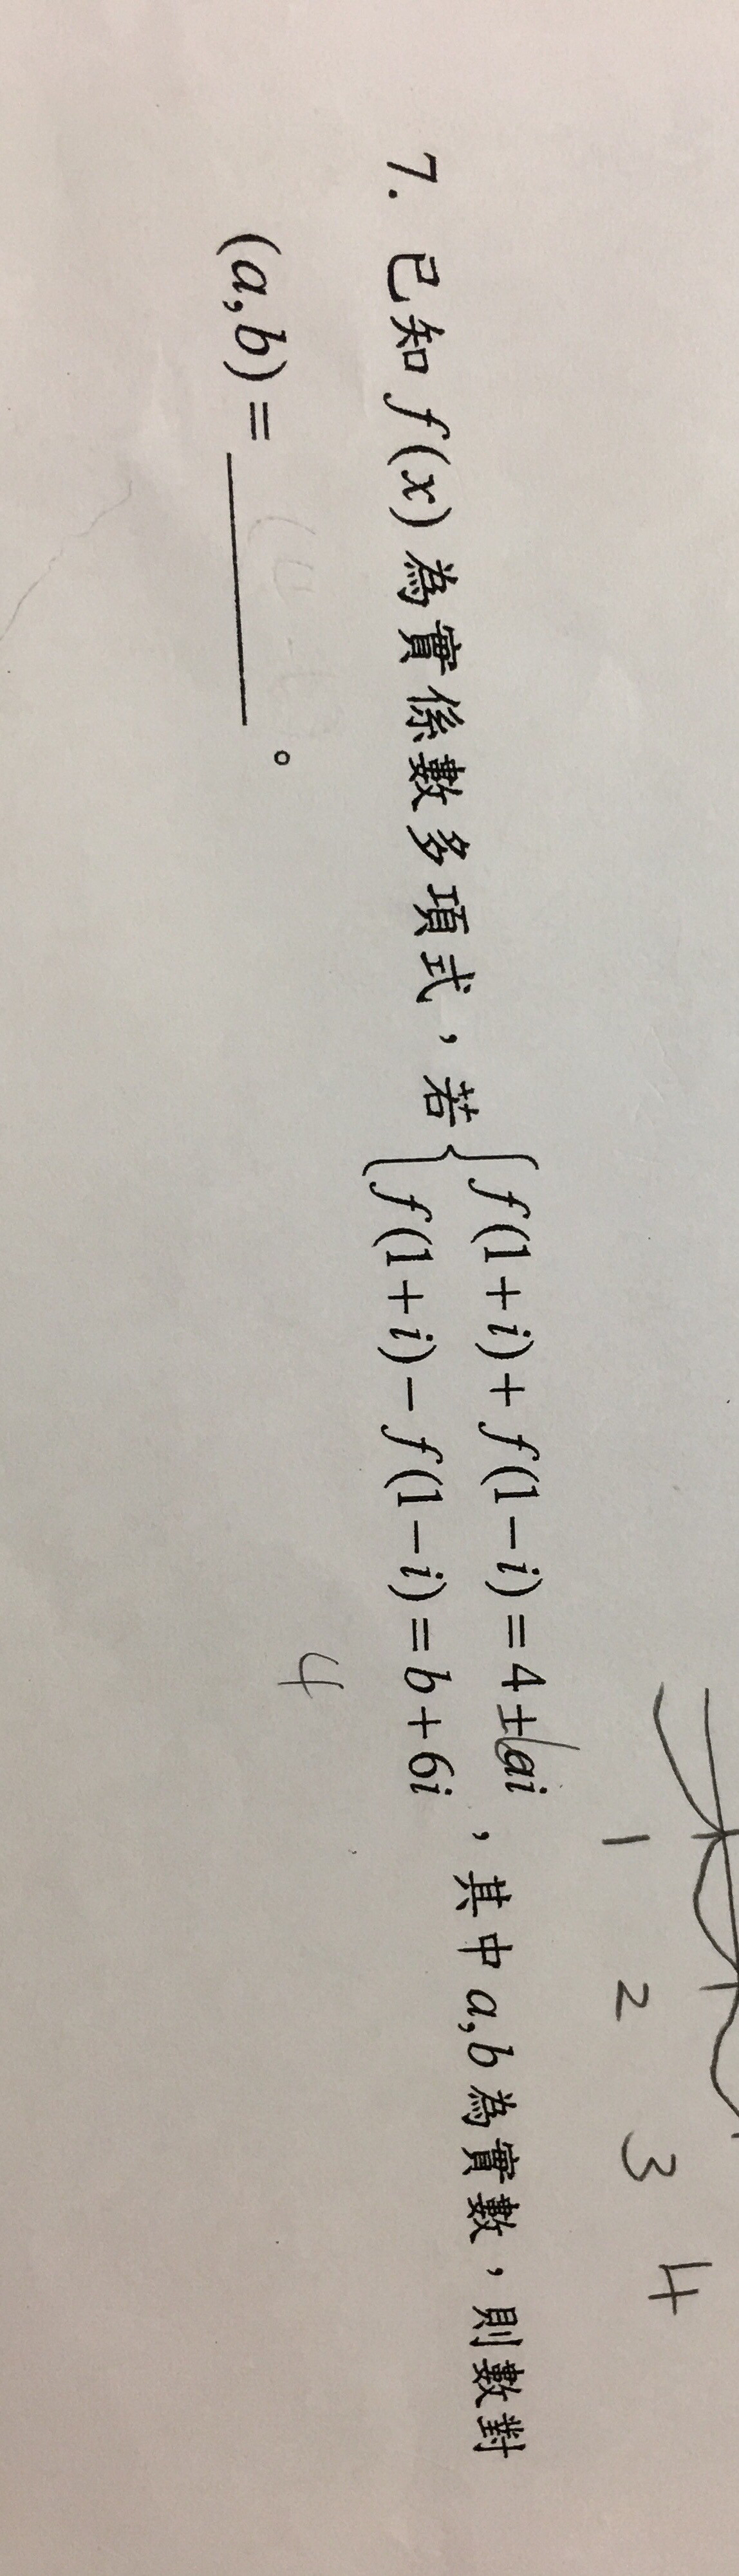 7. 已知 f(x) 為實係數多項式，若 { f(1+i)+f(1−i)=4+ai
f(1+i)−f(1−i)=b+6i ，其中 a,b 為實數，則數對
(a,b)=______。
4
1 2 3 4